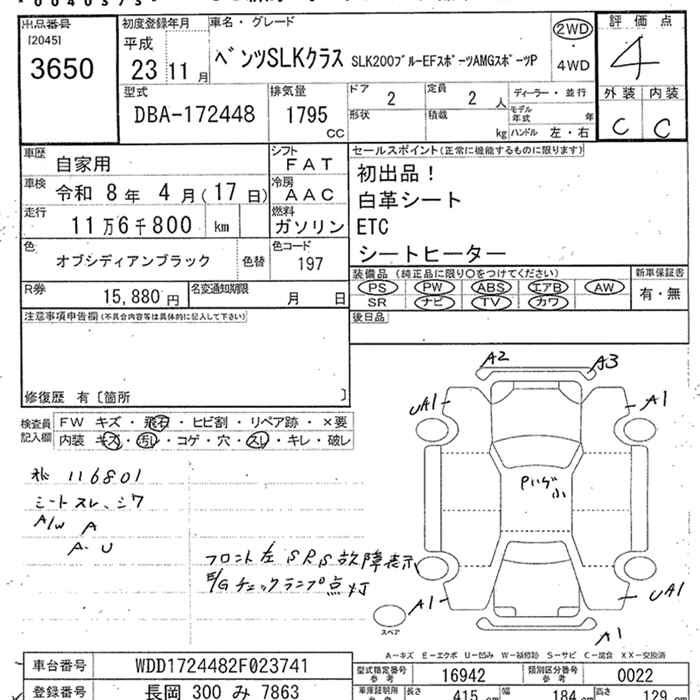 出品番号
[2045]
3650
初度登録年月
平成
23 11 月
車名・グレード
ベンツSLKクラス SLK200ブルーEFスポーツAMGスポーツP
2WD
4WD
評価点
4
外装 内装
C C
型式
DBA-172448
排気量
1795
CC
ドア
2
定員
2 人
形状
積載
kg
ディーラー・並行
モデル年式 年
ハンドル 左・右
車歴
自家用
シフト
FAT
車検
令和 8年 4月(17日)
冷房
AAC
走行
11万6千800 km
燃料
ガソリン
色
オブシディアンブラック
色替
色コード
197
R券
15,880 円
名変通知期限
月 日
セールスポイント(正常に機能するものに限ります)
初出品!
白革シート
ETC
シートヒーター
装備品 (純正品に限り○をつけてください)
PS PW ABS エアB AW
SR ナビ TV カワ
新車保証書
有・無
注意事項申告欄(不具合内容等は具体的に記入して下さい)
後日品
修復歴 有〔箇所 〕
検査員
記入欄
FW キズ・飛石・ヒビ割・リペア跡・×要
内装 キズ・汚レ・コゲ・穴・スレ・キレ・破レ
116801
シートスレ、シワ
A/W A
A・U
フロント左SRS故障表示
E/Gチェックランプ点灯
A2
A3
UA1
A1
A1
UA1
A1
スペア
A-キズ E-エクボ U-凹み W-補修跡 S-サビ C-腐食 XX-交換済
車台番号
WDD1724482F023741
型式指定番号
参考
16942
類別区分番号
参考
0022
登録番号
長岡 300 み 7863
車庫証明用
参考
長さ 415 cm 幅 184 cm 高さ 129 cm